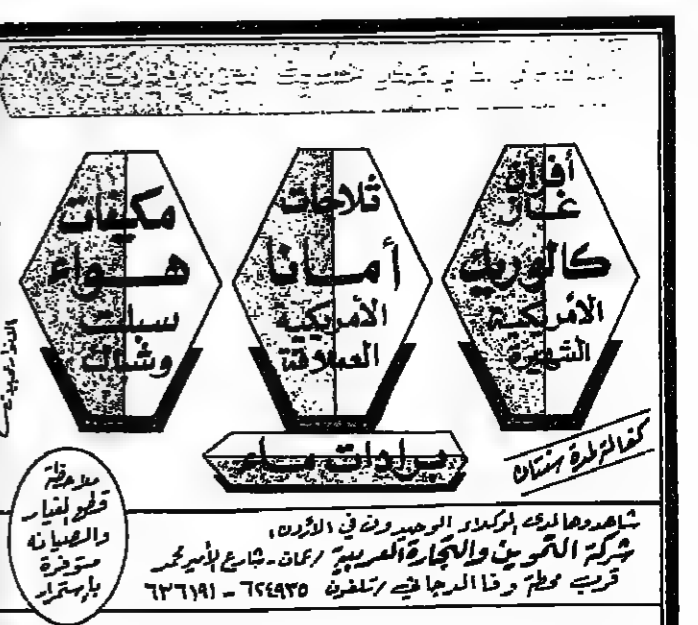 أفران
غاز
كالوريك
الأمريكية
الشهيرة
ثلاجات
أمانا
الأمريكية
العملاقة
مكيفات
هواء
سبلت
وشباك
برادات ماء
كفالة لمدة سنتان
ملاحظة
قطع الغيار
والصيانة
متوفرة
بإستمرار
شاهدوها لدى الوكلاء الوحيدون في الأردن،
شركة التموين والتجارة العربية / عمان - شارع الأمير محمد
قرب محطة وفا الدجاني / تلفون ٦٢٤٩٣٥ - ٦٣٦١٩١